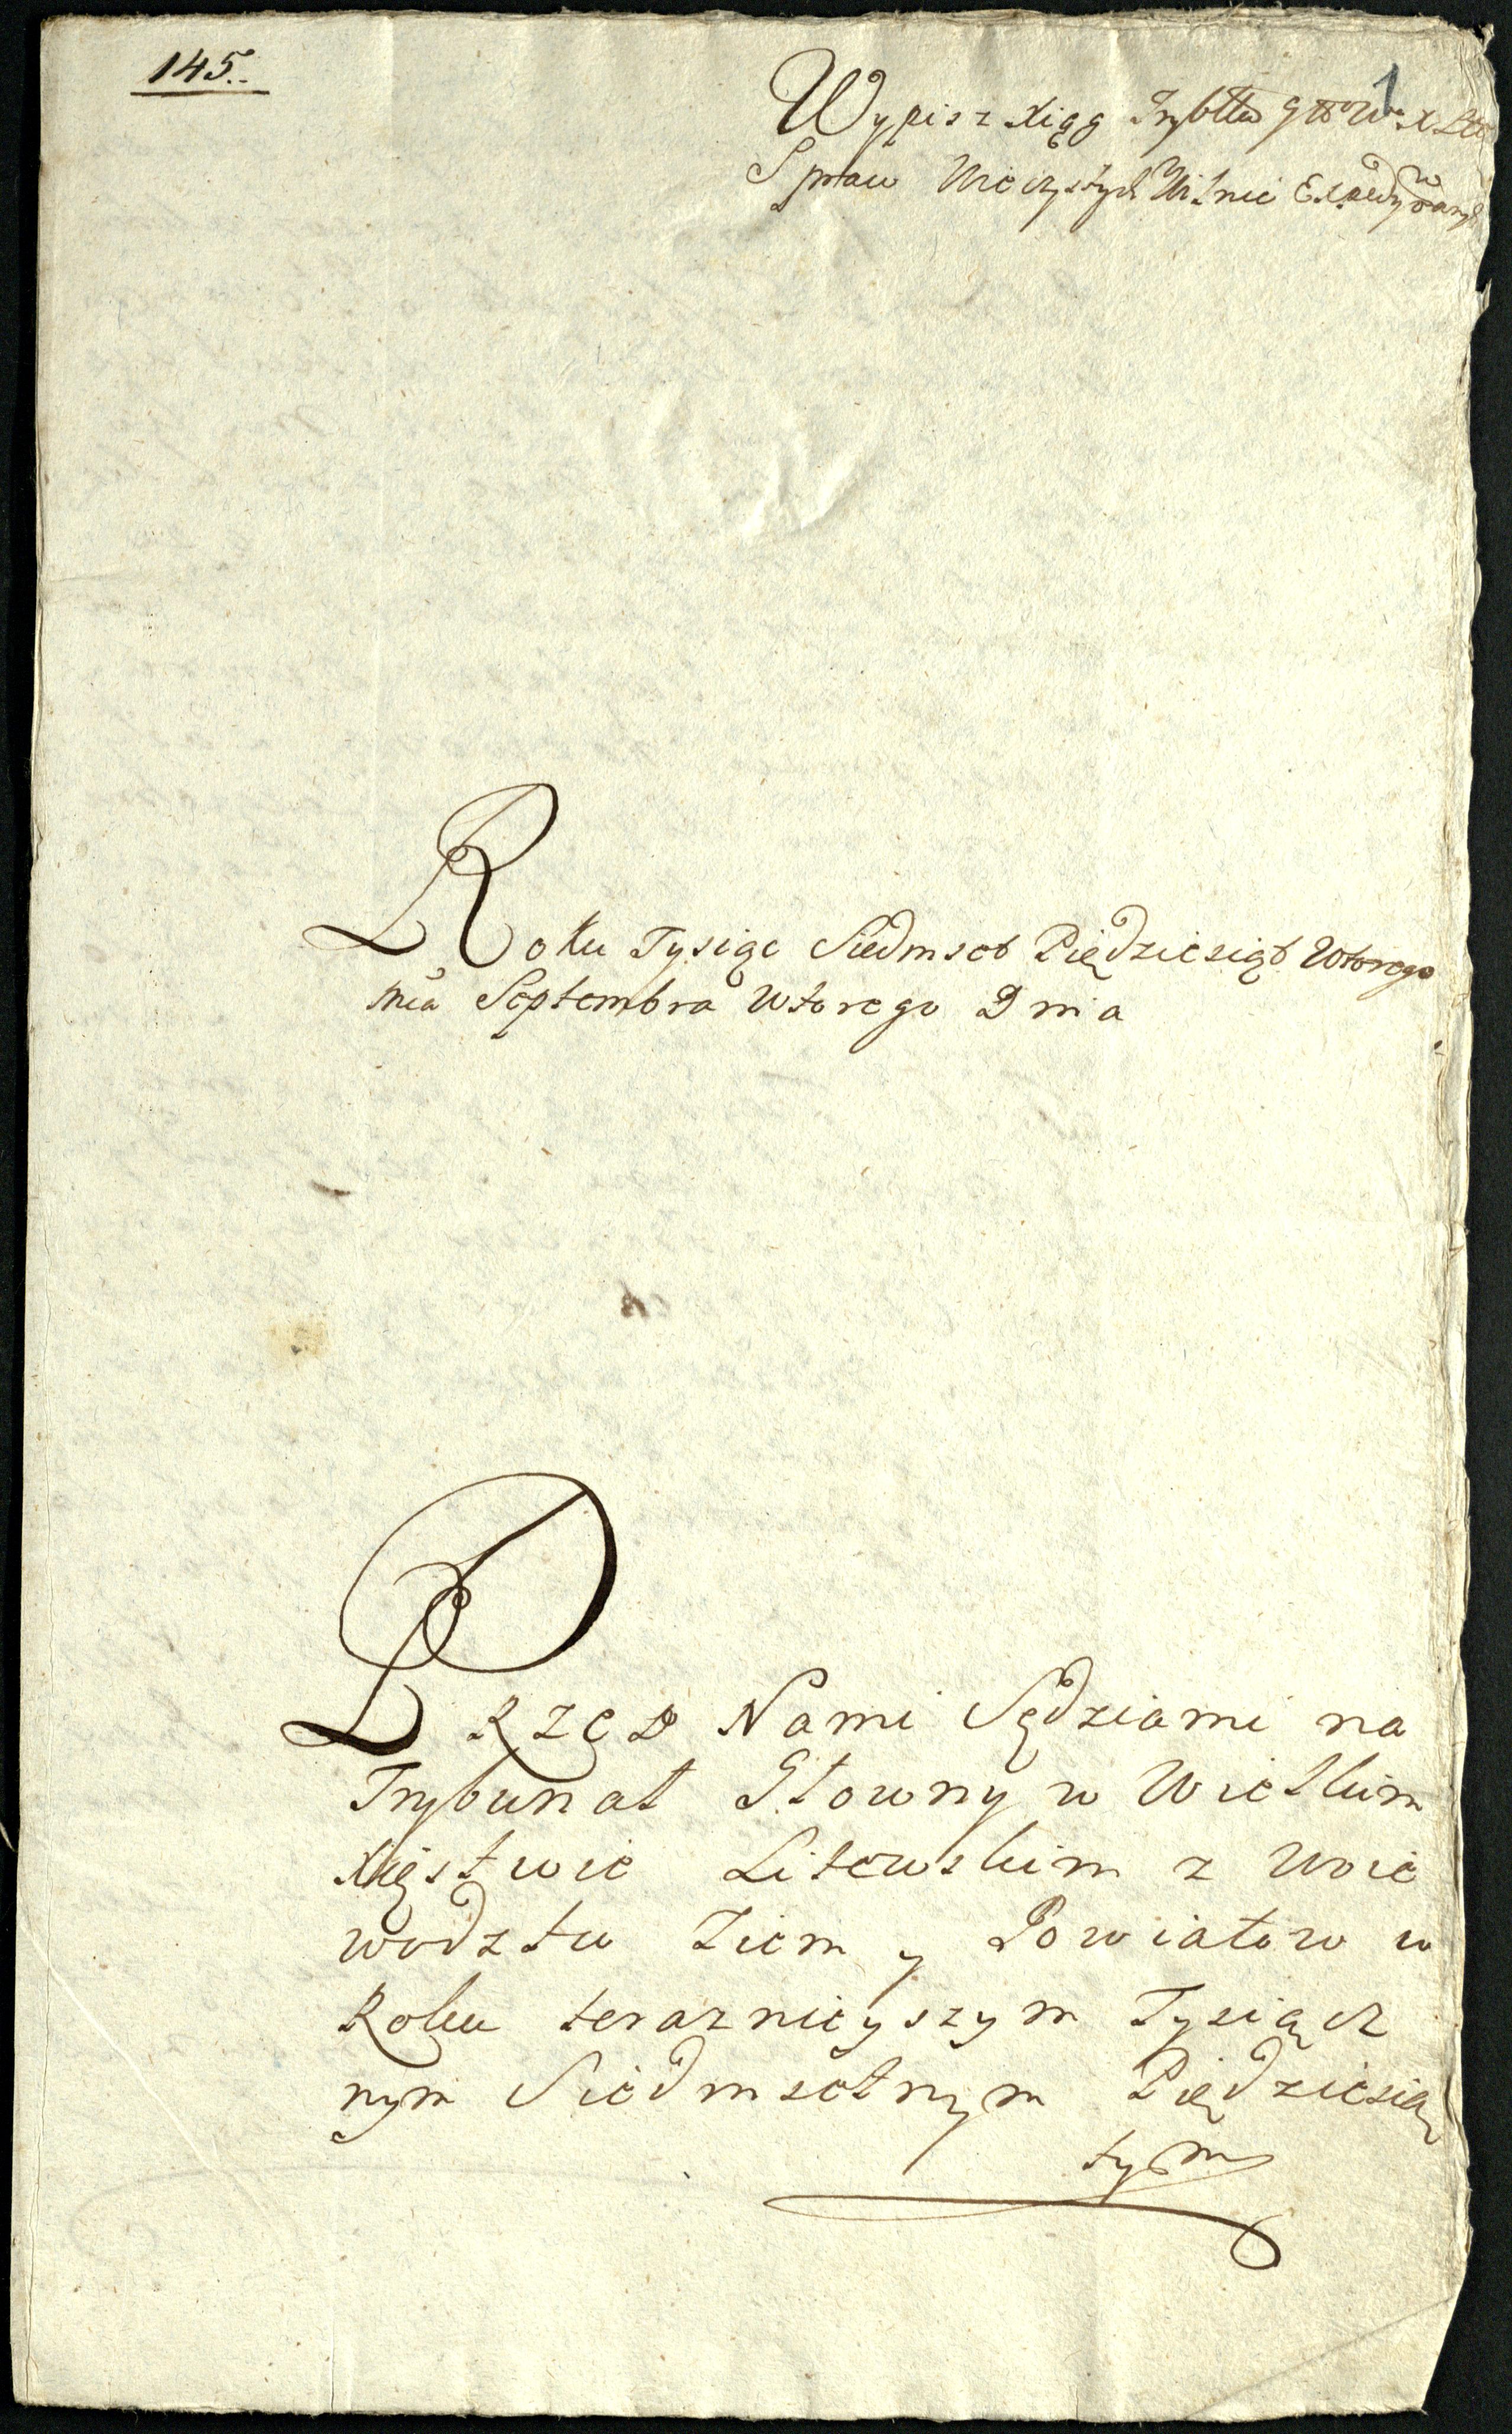 145.
1
Wypis z Xiąg Trybłłu Głłº Wº X Litº
Spraw Wieczystych Wilnie Expedyowanych
Roku Tysiąc Siedmset Piędziesiąt Wtorego
Mca Septembra Wtorego Dnia
PRZED Nami Sędziami na
Trybunał Głowny w Wielkim
Xięstwie Litewskim z Woie
wodztw Ziem y Powiatow w
Roku teraznieyszym Tysiącz
nym Siedmsetnym Piędziesią
tym